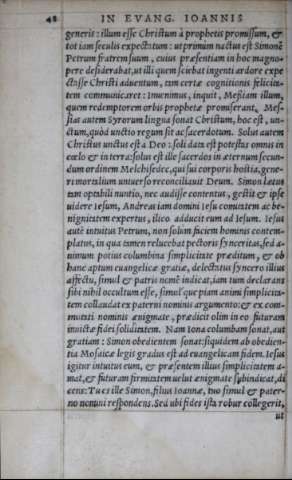 48 IN EVANG. IOANNIS
generis: illum esse Christum à prophetis promissum, &
tot iam seculis expectatum: ut primum nactus est Simonē
Petrum fratrem suum, cuius præsentiam in hoc magno-
pere desiderabat, ut illi quem sciebat ingenti ardore expe
ctasse Christi aduentum, tam certæ cognitionis felicita-
tem communicaret: Inuenimus, inquit, Messiam illum,
quem redemptorem orbis prophetæ promiserant. Mes-
sias autem Syrorum lingua sonat Christum, hoc est, un-
ctum, quòd unctio regum sit ac sacerdotum. Solus autem
Christus unctus est à Deo: soli data est potestas omnis in
cœlo & in terra: solus est ille sacerdos in æternum secun-
dum ordinem Melchisedec, qui sui corporis hostia, gene-
ri mortalium uniuerso reconciliauit Deum. Simon lætus
tam optabili nuntio, nec audisse contentus, gestit & ipse
uidere Iesum, Andreas iam domini Iesu comitatem ac be-
nignitatem expertus, ilico adducit eum ad Iesum. Iesus
autē intuitus Petrum, non solùm faciem hominis contem-
platus, in qua tamen relucebat pectoris synceritas, sed a-
nimum potius columbina simplicitate præditum, & ob
hanc aptum euangelicæ gratiæ, delectatus syncero illius
affectu, simul & patris nomē indicat, iam tum declarans
sibi nihil occultum esse, simul que piam animi simplicita-
tem collaudat ex paterni nominis argumento: & ex com-
mutati nominis ænigmate, prædicit olim in eo futuram
inuictæ fidei soliditatem. Nam Iona columbam sonat, aut
gratiam: Simon obedientem sonat: siquidem ab obedien-
tia Mosaicæ legis gradus est ad euangelicam fidem. Iesus
igitur intuitus eum, & præsentem illius simplicitatem a-
mat, & futuram firmitatem uelut ænigmate subindicat, di
cens: Tu es ille Simon, filius Ioannæ, tuo simul & pater-
no nomini respondens. Sed ubi fides ista robur collegerit,
ut